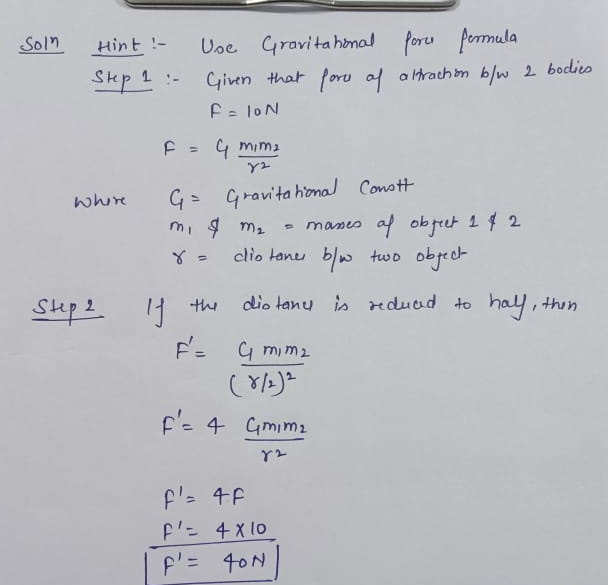 Soln Hint :- Use Gravitational force formula
Step 1 :- Given that force of attraction b/w 2 bodies
F = 10N
F = G m1m2
r2
where G = Gravitational Constt
m1 & m2 = masses of object 1 & 2
r = distance b/w two object
Step 2 If the distance is reduced to half, then
F' = G m1m2
(r/2)2
F' = 4 Gm1m2
r2
F' = 4F
F' = 4 x 10
F' = 40N